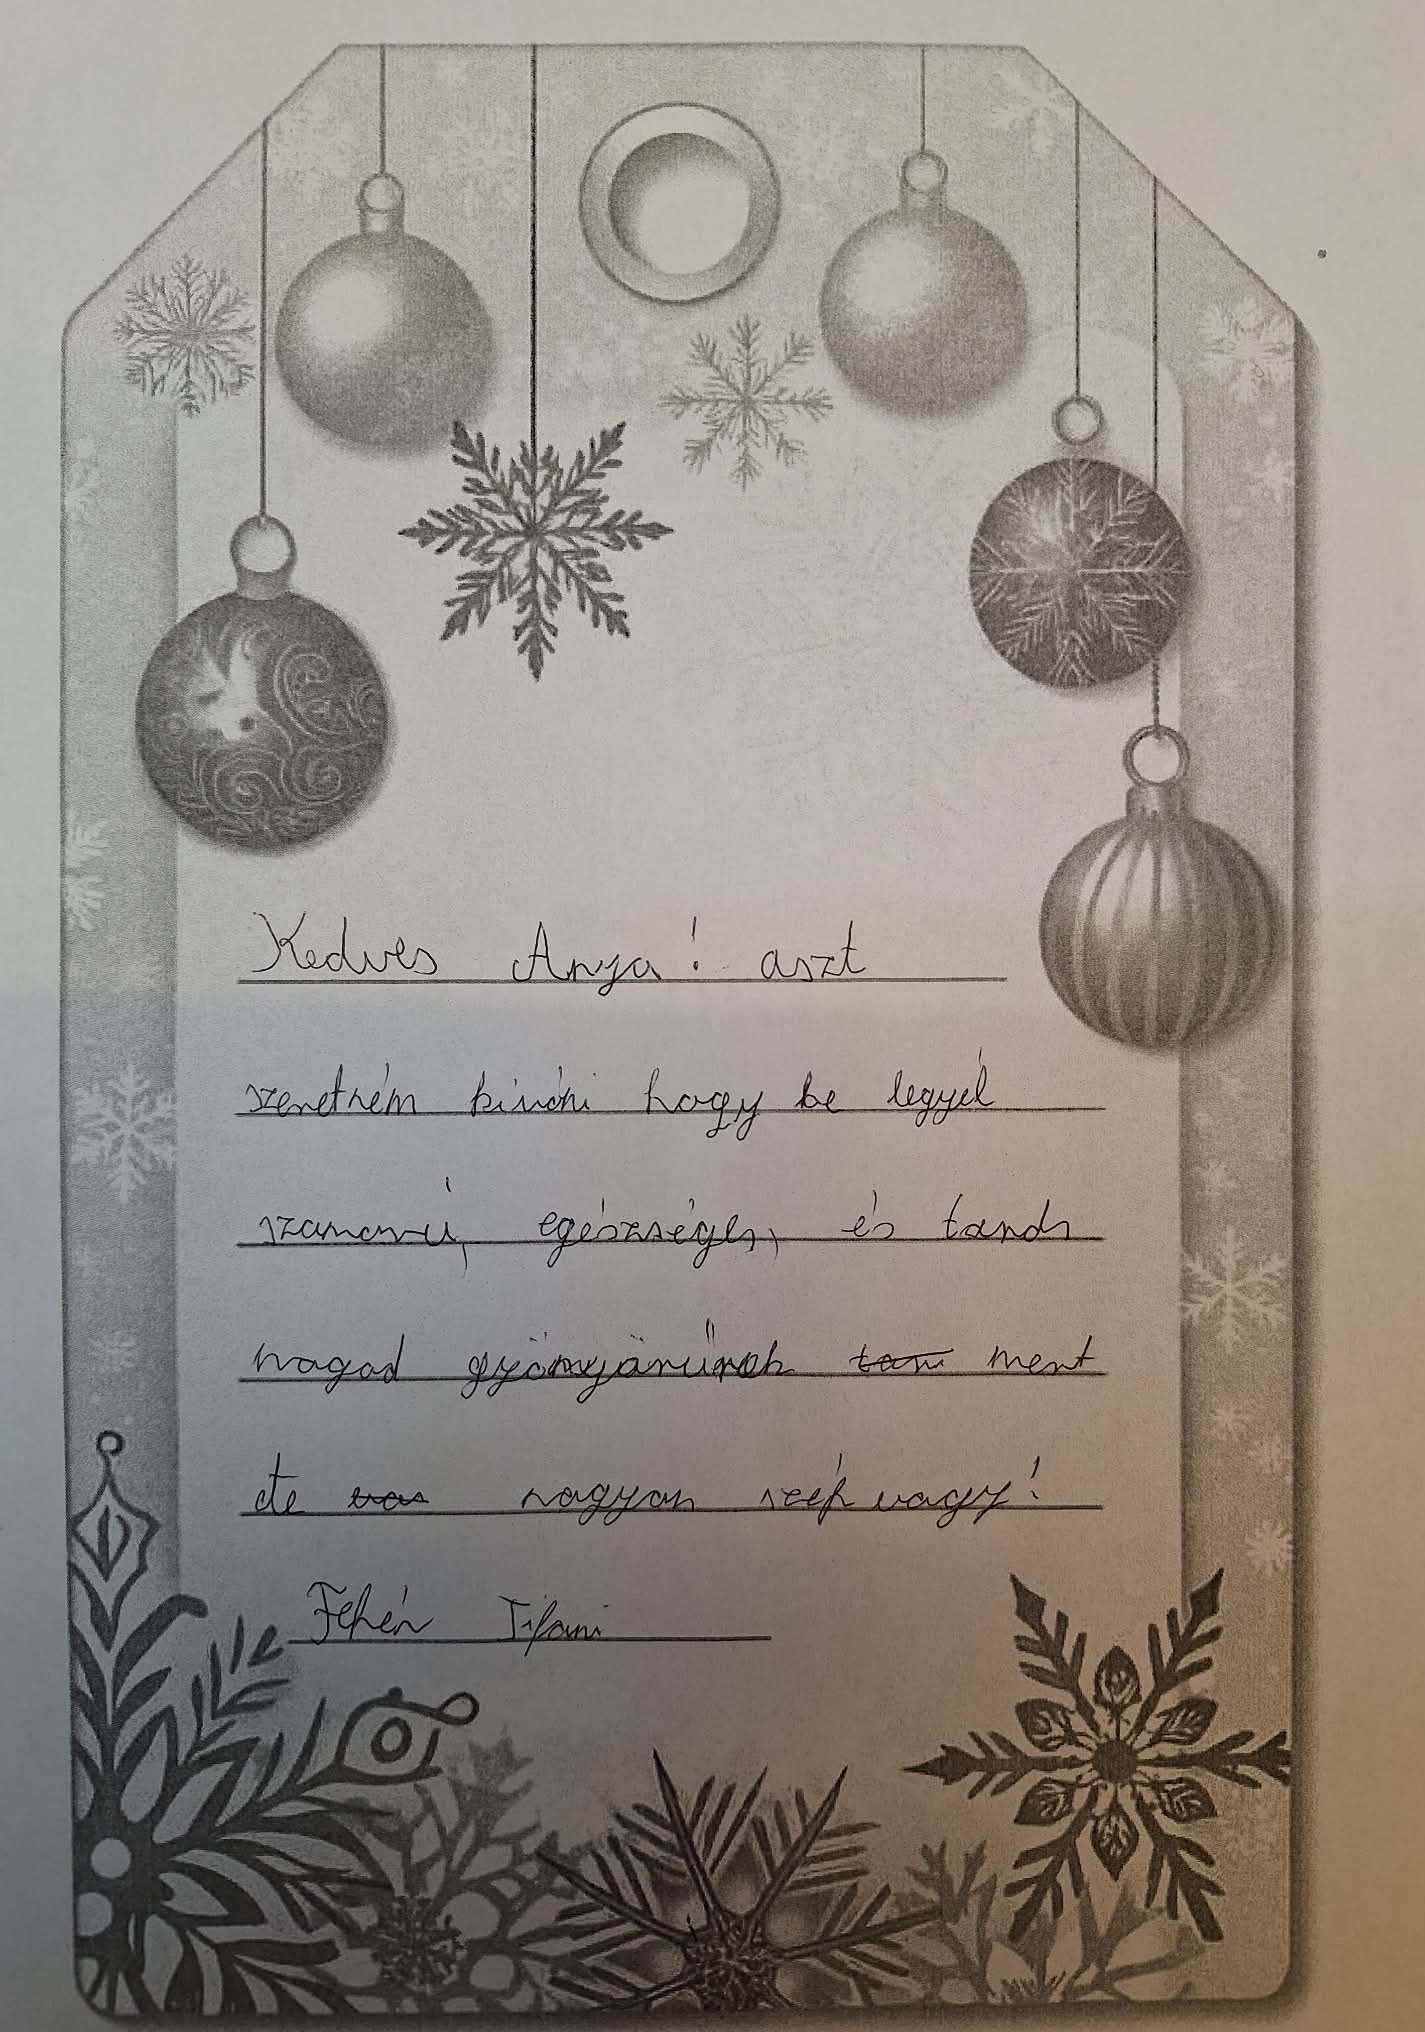 Kedves Anya! aszt
szeretném kívóni hogy be legyél
szamorú, egészséges, és tards
magad gyönyörűnek tani mert
ete vas nagyon szép vagy!
Fehér Tifani